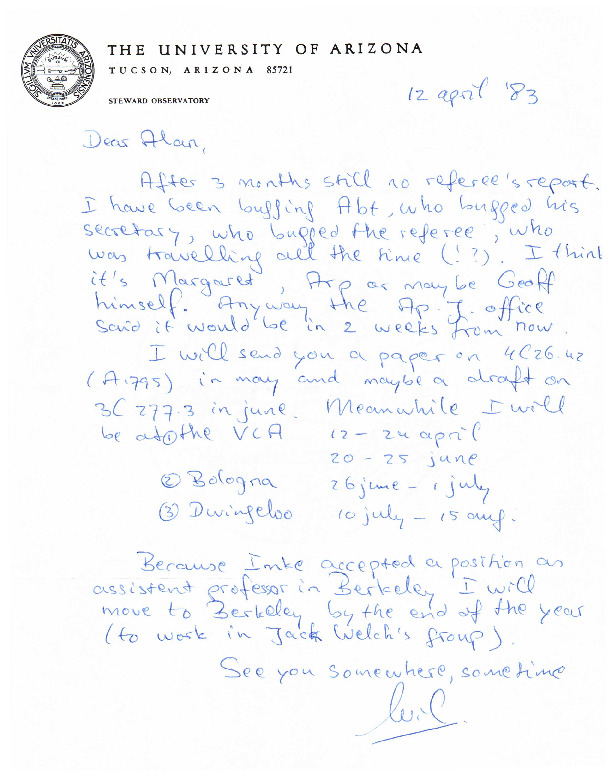 THE UNIVERSITY OF ARIZONA
TUCSON, ARIZONA 85721
STEWARD OBSERVATORY
12 april '83
Dear Alan,
After 3 months still no referee's report.
I have been bugging Abt, who bugged his
secretary, who bugged the referee, who
was travelling all the time (!?). I think
it's Margaret, Arp or maybe Geoff
himself. Anyway the Ap. J. office
said it would be in 2 weeks from now.
I will send you a paper on 4C26.42
(A1795) in may and maybe a draft on
3C 277.3 in june. Meanwhile I will
be at ① the VLA 12 – 24 april
20 – 25 june
② Bologna 26 june – 1 july
③ Dwingeloo 10 july – 15 aug.
Because Imke accepted a position as
assistent professor in Berkeley I will
move to Berkeley by the end of the year
(to work in Jack Welch's group).
See you somewhere, sometime
Wil